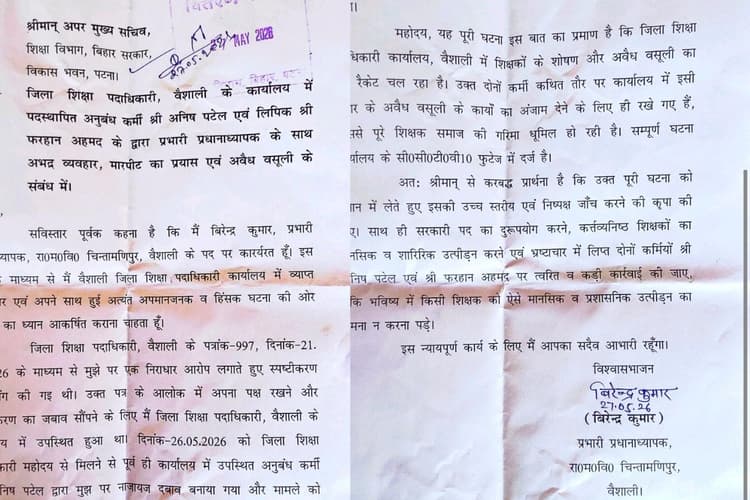 श्रीमान् अपर मुख्य सचिव,
शिक्षा विभाग, बिहार सरकार,
विकास भवन, पटना।
27.05.26
MAY 2026
जिला शिक्षा पदाधिकारी, वैशाली के कार्यालय में
पदस्थापित अनुबंध कर्मी श्री अनिष पटेल एवं लिपिक श्री
फरहान अहमद के द्वारा प्रभारी प्रधानाध्यापक के साथ
अभद्र व्यवहार, मारपीट का प्रयास एवं अवैध वसूली के
संबंध में।
सविस्तार पूर्वक कहना है कि मैं बिरेन्द्र कुमार, प्रभारी
यापक, रा0म0वि0 चिन्तामणिपुर, वैशाली के पद पर कार्यरत हूँ। इस
माध्यम से मैं वैशाली जिला शिक्षा पदाधिकारी कार्यालय में व्याप्त
एवं अपने साथ हुई अत्यंत अपमानजनक व हिंसक घटना की ओर
का ध्यान आकर्षित कराना चाहता हूँ।
जिला शिक्षा पदाधिकारी, वैशाली के पत्रांक-997, दिनांक-21.
26 के माध्यम से मुझे पर एक निराधार आरोप लगाते हुए स्पष्टीकरण
की गइ थी। उक्त पत्र के आलोक में अपना पक्ष रखने और
करण का जबाव सौंपने के लिए मैं जिला शिक्षा पदाधिकारी, वैशाली के
य में उपस्थित हुआ था। दिनांक-26.05.2026 को जिला शिक्षा
कारी महोदय से मिलने से पूर्व ही कार्यालय में उपस्थित अनुबंध कर्मी
निष पटेल द्वारा मुझ पर नाजायज दबाव बनाया गया और मामले को
महोदय, यह पूरी घटना इस बात का प्रमाण है कि जिला शिक्षा
धिकारी कार्यालय, वैशाली में शिक्षकों के शोषण और अवैध वसूली का
रैकेट चल रहा है। उक्त दोनों कर्मी कथित तौर पर कार्यालय में इसी
र के अवैध वसूली के कार्यो का अंजाम देने के लिए ही रखे गए हैं,
ससे पूरे शिक्षक समाज की गरिमा धूमिल हो रही है। सम्पूर्ण घटना
र्यालय के सी0सी0टी0वी10 फुटेज में दर्ज है।
अतः श्रीमान् से करबद्ध प्रार्थना है कि उक्त पूरी घटना को
ान में लेते हुए इसकी उच्च स्तरीय एवं निष्पक्ष जाँच करने की कृपा की
ए। साथ ही सरकारी पद का दुरूपयोग करने, कर्त्तव्यनिष्ठ शिक्षकों का
नसिक व शारिरिक उत्पीड़न करने एवं भ्रष्टाचार में लिप्त दोनों कर्मियों श्री
निष पटेल एवं श्री फरहान अहमद पर त्वरित व कड़ी कार्रवाई की जाए,
कि भविष्य में किसी शिक्षक को ऐसे मानसिक व प्रशासनिक उत्पीड़न का
मना न करना पड़े।
इस न्यायपूर्ण कार्य के लिए मैं आपका सदैव आभारी रहूँगा।
विश्वासभाजन
बिरेन्द्र कुमार
27.05.26
( बिरेन्द्र कुमार )
प्रभारी प्रधानाध्यापक,
रा0म0वि0 चिन्तामणिपुर,
वैशाली।